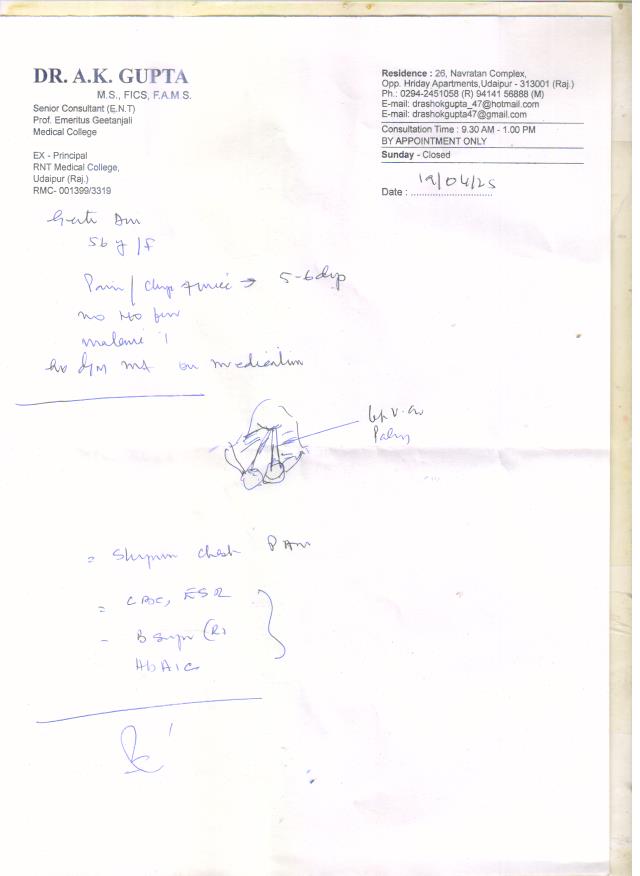 DR. A.K. GUPTA
M.S., FICS, F.A.M.S.
Senior Consultant (E.N.T)
Prof. Emeritus Geetanjali
Medical College
EX - Principal
RNT Medical College,
Udaipur (Raj.)
RMC- 001399/3319
Residence : 26, Navratan Complex,
Opp. Hriday Apartments,Udaipur - 313001 (Raj.)
Ph.: 0294-2451058 (R) 94141 56888 (M)
E-mail: drashokgupta_47@hotmail.com
E-mail: drashokgupta47@gmail.com
Consultation Time : 9.30 AM - 1.00 PM
BY APPOINTMENT ONLY
Sunday - Closed
Date : 19/04/25
56 y/F
Pain / → 5-6 days
no H/o
on medication
Lt V.
Palsy
= chest P A
= CBC, ESR
- B Sugar (R)
HbA1C